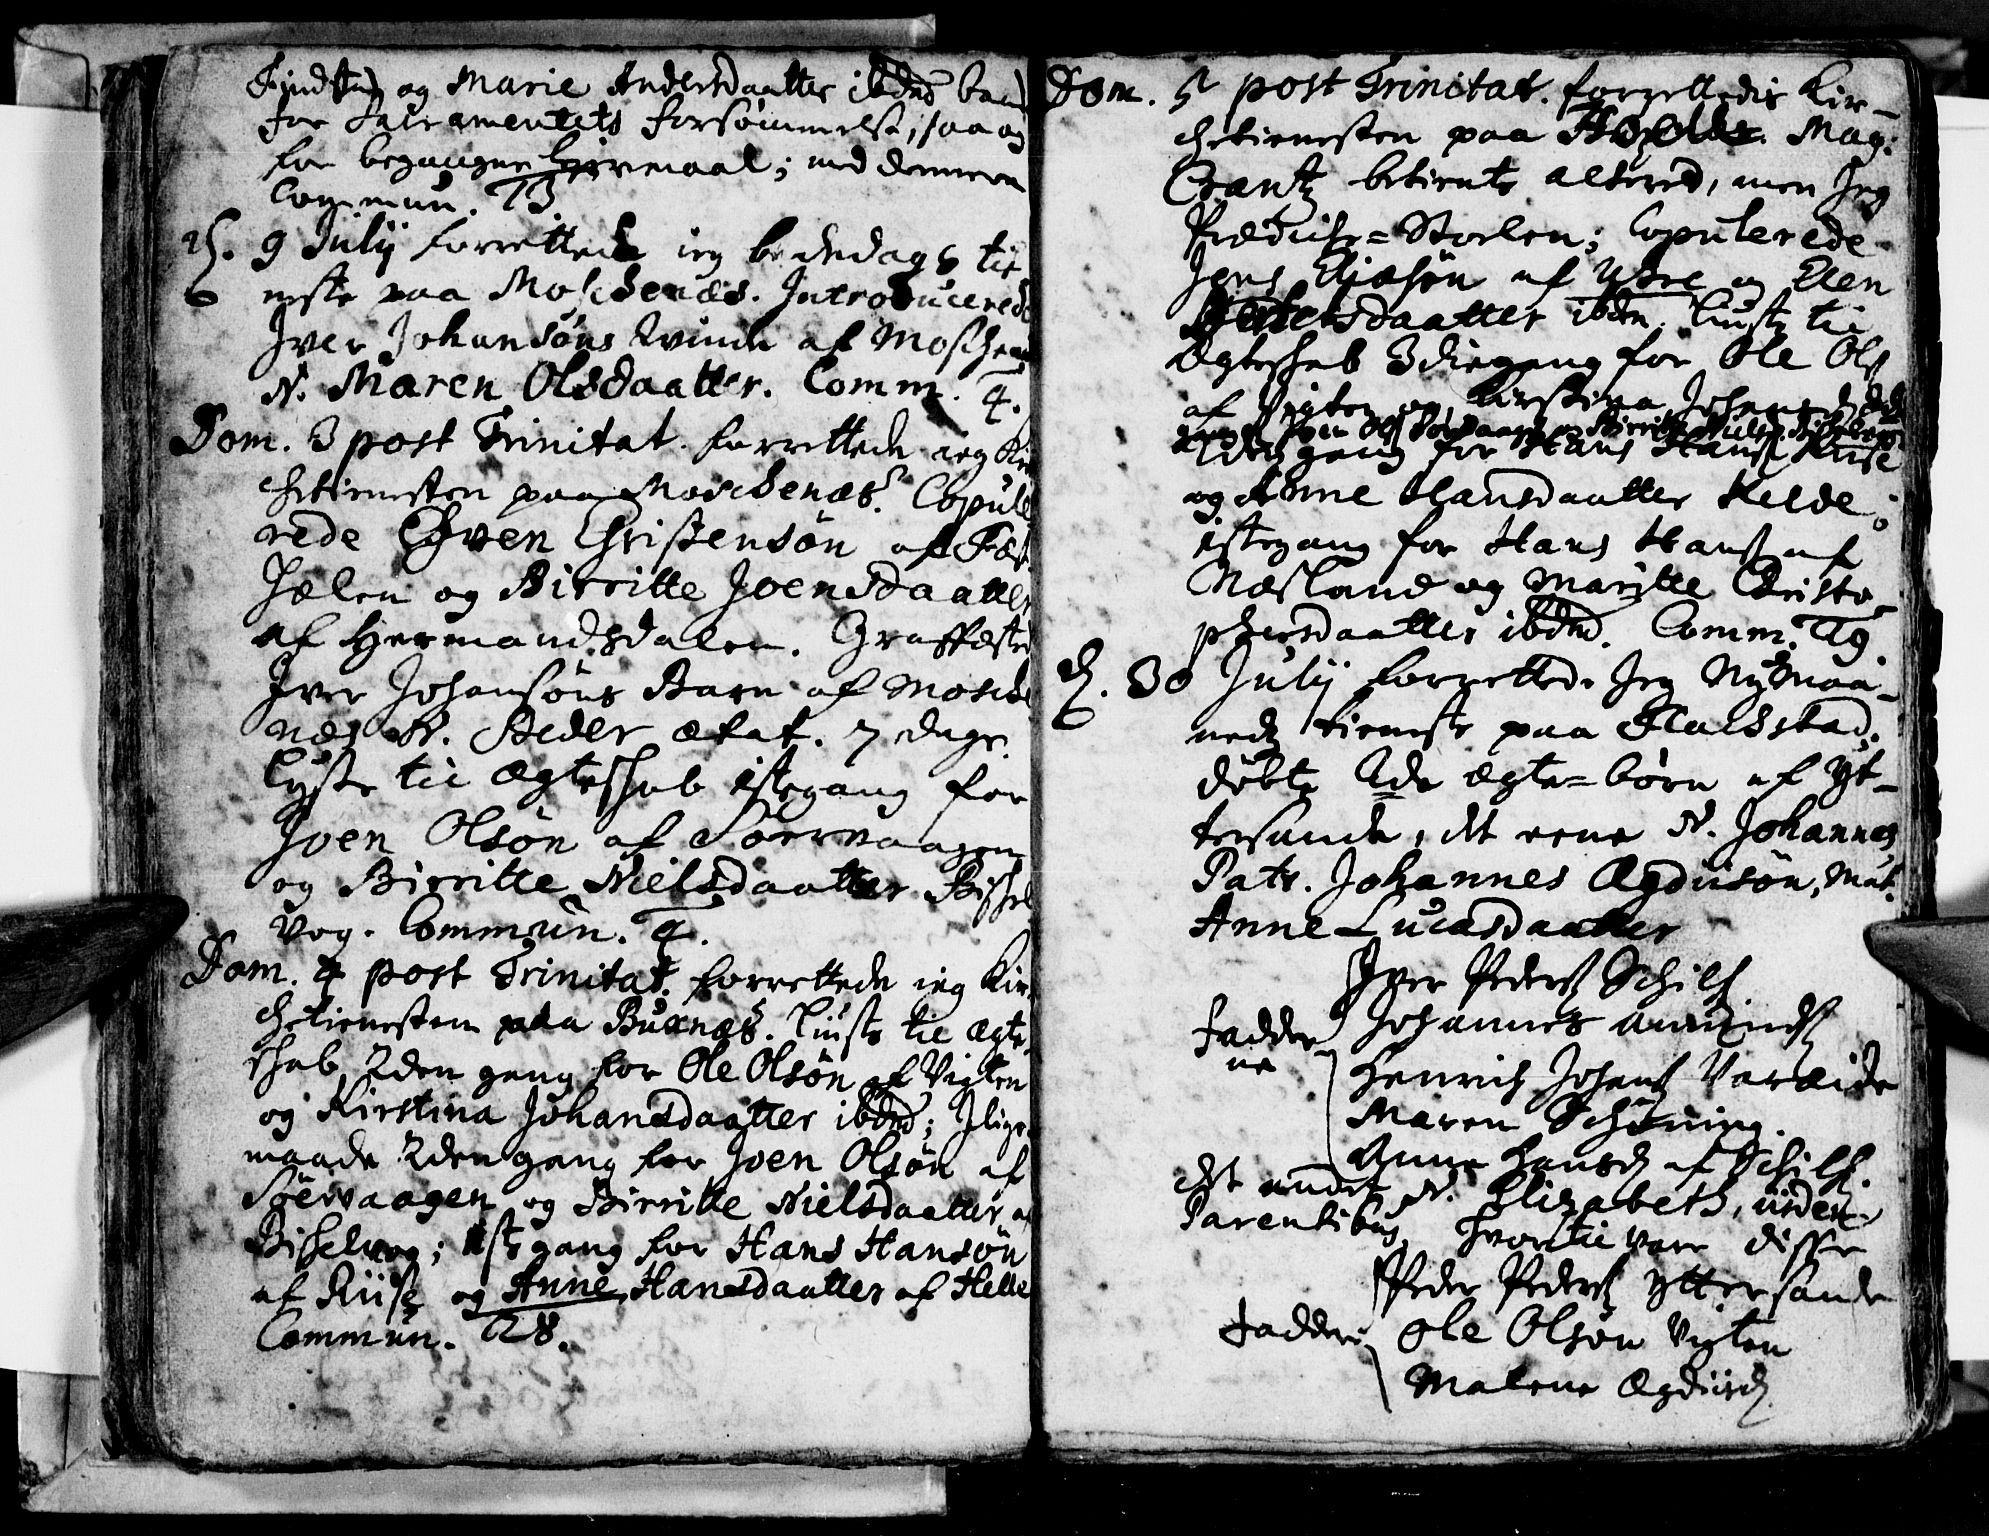 og Marie Andersdaatter ibdm baade
for Sacramentets forsømmelse, saa og
for begangne Leiermaal; med dennem
Commun. 13
d. 9 Julij forrettede ieg bededags tie-
neste paa Moschenæs. Introducerede
Iver Johansøns Qvinde af Moschenæs
N. Maren Olsdaatter. Comm. 4.
Dom. 3 post Trinitat. forrettede ieg Kir-
chetienesten paa Moschenæs. Copule-
rede Christensøn af
og Birritte Joensdaatter
af Hermandsdalen. Graffæstede
Iver Johansøns Barn af Mosche-
næs N. Peder ætat. 7 dage.
Lyste til Ægteskab 1ste gang for
Joen Olsøn af Sørvaagen
og Birritte Nielsdaatter
vog. Commun. 4.
Dom. 4 post Trinitat. forrettede ieg Kir-
chetienesten paa Buxnæs. Liuste til Ægte-
skab 2den gang for Ole Olsøn af Vigten
og Kirstina Johansdaatter ibdm; Ilige-
maade 2den gang for Joen Olsøn af
Sørvaagen og Birritte Nielsdaatter af
1ste gang for Hans Hansøn
af Riise og Anne Hansdaatter af Helle
Commun. 28.
Dom. 5 post Trinitat. forrettedis Kir-
chetienesten paa Mag:
Crantz betiente alteret, men Jeg
Prædiche-Stoelen; Copulerede
Jens af Uре og Elen
ibdm. Liuste til
Ægteskab 3die gang for Ole Ols
af Vigten og Kirstina Johansd
2den gang for Hans Hans Riise
og Anne Hansdaatter Helde;
1ste gang for Hans Hans af
Næsland og Maritte Christo-
phersdaatter ibdm. Comm. 19.
d. 30 Julij forrettede Jeg Nÿmaa-
nedz tieneste paa Flachstad,
døbte 2de ægte-børn af Yt-
tersande, det eene N. Johannes
Patr. Johannes Ægdiusøn, Mat.
Anne Lucasdaatter
Iver Peders Schilf
Fadder- Johannes
ne Henrich Johans
Maren Schiøning.
Anne Hansd af Schilf.
det andet N. Elizabeth, iisdem
Parentibus, hvortil vare disse
Peder Peders Yttersande
Faddere Ole Olsøn Vigten
Malene Ægdiisd